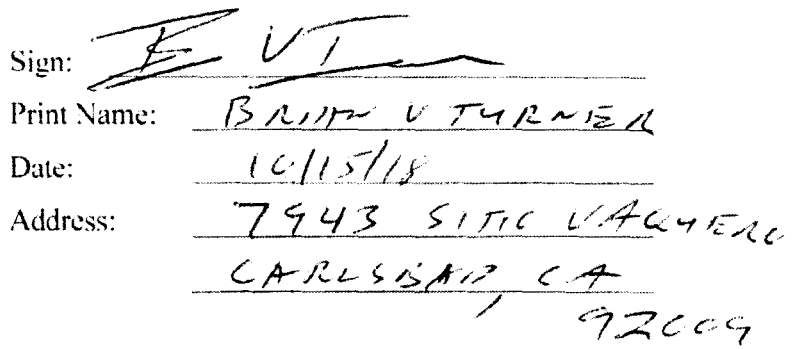 Sign: B V Turner
Print Name: BRIAN V TURNER
Date: 10/15/18
Address: 7943 SITIO VAQUERO
CARLSBAD, CA
92009